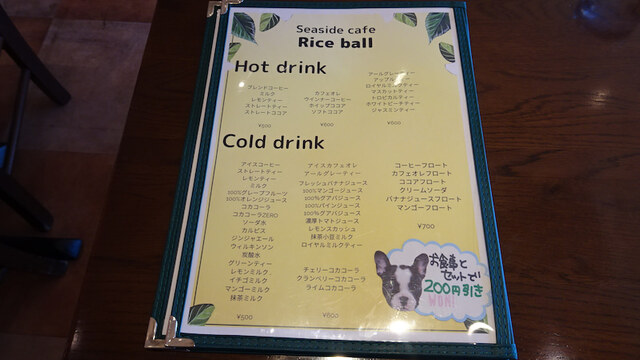 Seaside cafe
Rice ball
Hot drink
ブレンドコーヒー
ミルク
レモンティー
ストレートティー
ストレートココア
¥500
カフェオレ
ウインナーコーヒー
ホイップココア
ソフトココア
¥600
アールグレーティー
アップルティー
ロイヤルミルクティー
マスカットティー
トロピカルティー
ホワイトピーチティー
ジャスミンティー
¥600
Cold drink
アイスコーヒー
ストレートティー
レモンティー
ミルク
100%グレープフルーツ
100%オレンジジュース
コカコーラ
コカコーラZERO
ソーダ水
カルピス
ジンジャエール
ウィルキンソン
炭酸水
グリーンティー
レモンミルク
イチゴミルク
マンゴーミルク
抹茶ミルク
¥500
アイスカフェオレ
アールグレーティー
フレッシュバナナジュース
100%マンゴージュース
100%グアバジュース
100%パインジュース
100%グアバジュース
濃厚トマトジュース
レモンスカッシュ
抹茶小豆ミルク
ロイヤルミルクティー
チェリーコカコーラ
クランベリーコカコーラ
ライムコカコーラ
¥600
コーヒーフロート
カフェオレフロート
ココアフロート
クリームソーダ
バナナジュースフロート
マンゴーフロート
¥700
お食事と
セットで
200円引き
WON!